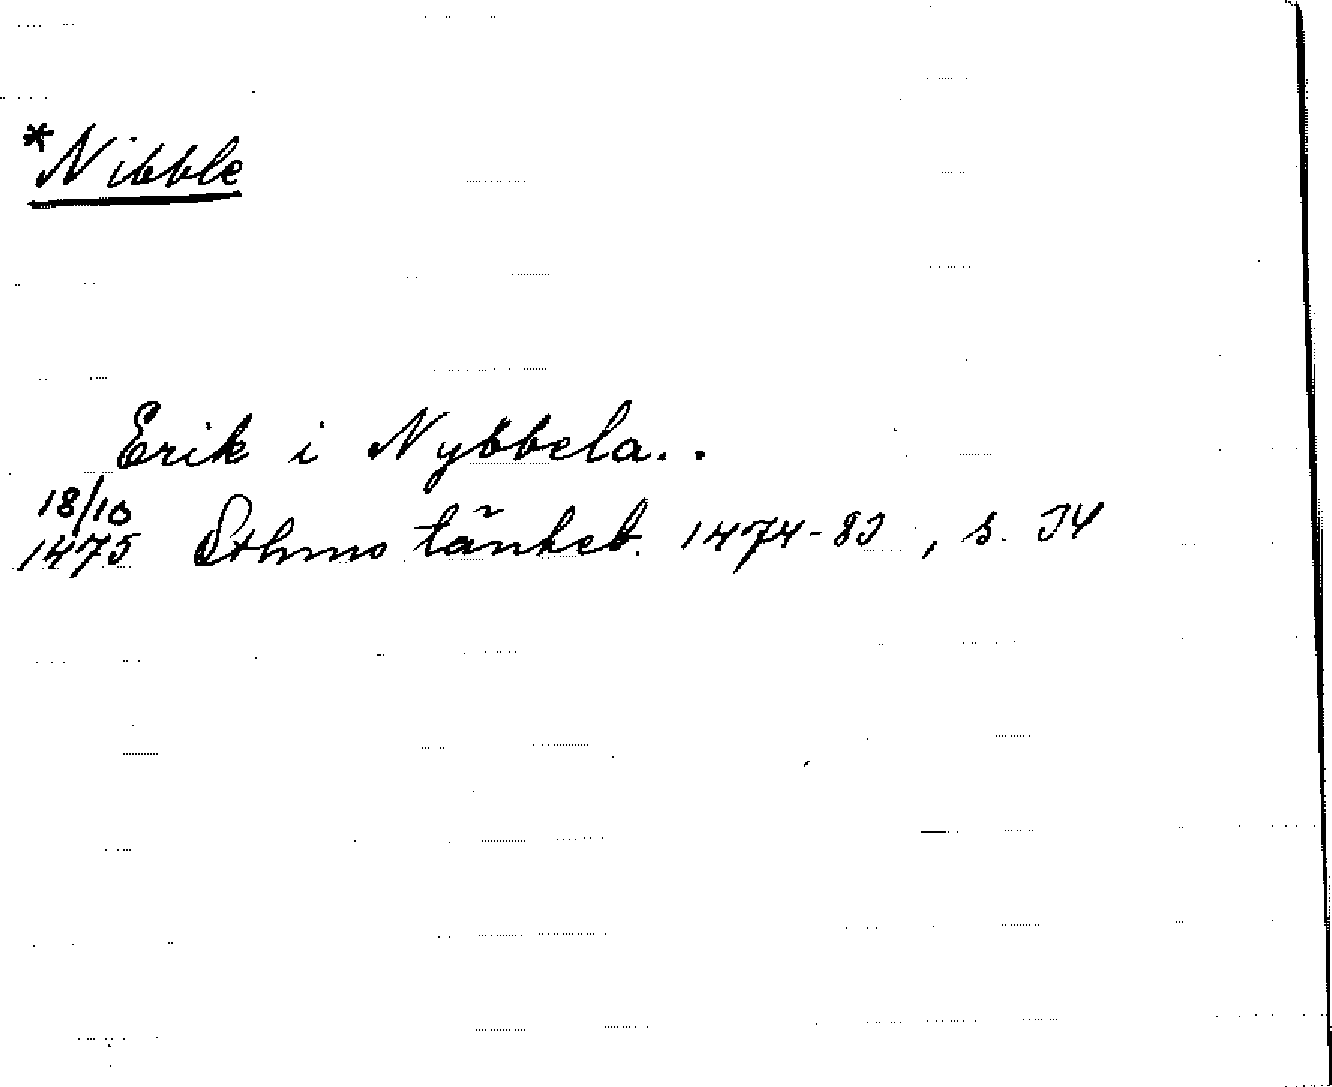 *Nibble
Erik i Nybbela..
18/10
1475 Sthms tänkeb. 1474-83, s. 34